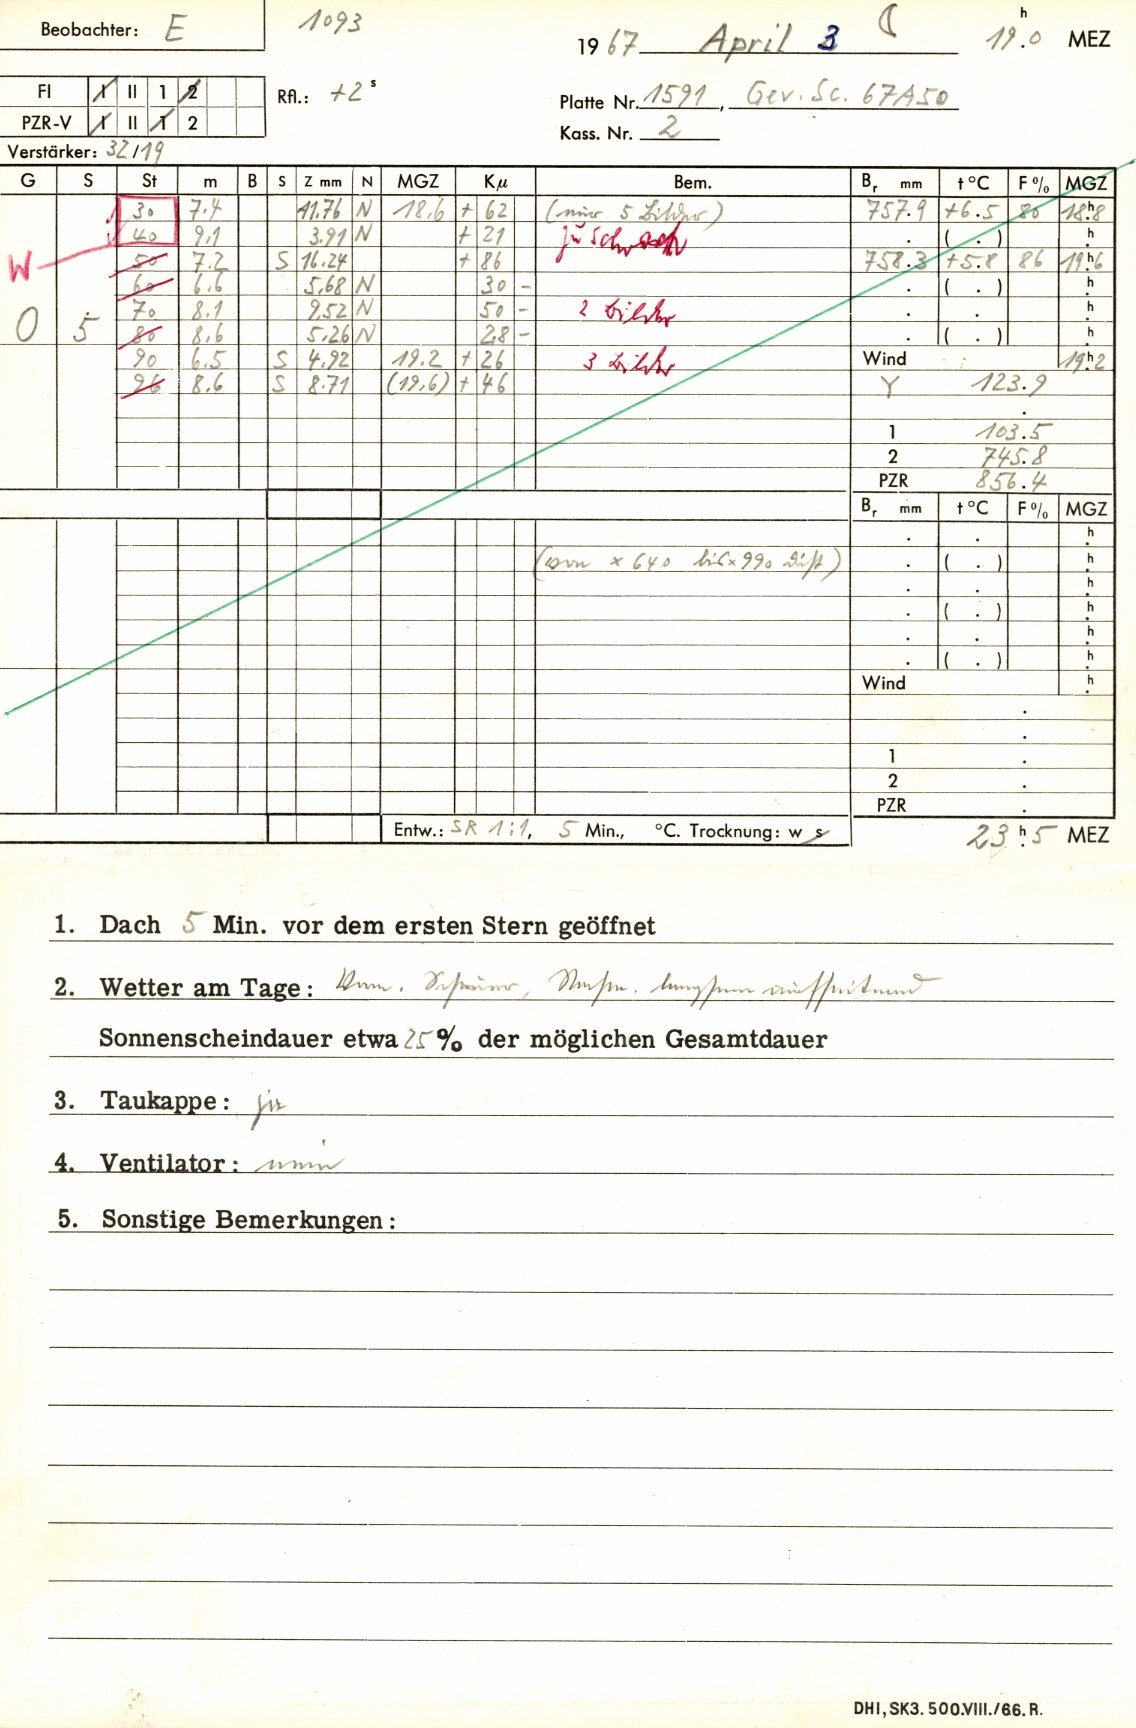 Beobachter: E 1093 19 67 April 3 19.h0 MEZ
FI I II 1 2 Rfl.: +2 s Platte Nr. 1591, Gev. Sc. 67A50
PZR-V I II 1 2 Kass. Nr. 2
Verstärker: 32/19
G S St m B S Z mm N MGZ Kμ Bem. Br mm t °C F % MGZ
30 7.4 11.76 N 18.6 + 62 (nur 5 Bilder) 757.9 +6.5 80 18.h8
40 9.1 3.91 N + 21 zu schwach . ( . ) .h
W 50 7.2 S 16.24 + 86 758.3 +5.8 86 19.h6
60 6.6 5.68 N 30 - . ( . ) .h
O 5 70 8.1 9.52 N 50 - 2 Bilder . . .h
80 8.6 5.26 N 28 - . ( . ) .h
90 6.5 S 4.92 19.2 + 26 3 Bilder Wind 19.h2
96 8.6 S 8.71 (19.6) + 46 Y 123.9
.
1 103.5
2 745.8
PZR 856.4
Br mm t °C F % MGZ
. . .h
(von × 640 bis × 990 ) . ( . ) .h
. . .h
. ( . ) .h
. . .h
. ( . ) .h
Wind .h
.
.
1 .
2 .
PZR .
Entw.: SR 1:1, 5 Min., °C. Trocknung: w s 23.h5 MEZ
1. Dach 5 Min. vor dem ersten Stern geöffnet
2. Wetter am Tage: Vorm. Schauer, Nachm. langsam aufheiternd
Sonnenscheindauer etwa 25 % der möglichen Gesamtdauer
3. Taukappe: ja
4. Ventilator: nein
5. Sonstige Bemerkungen:
DHI, SK3. 500.VIII./66. R.